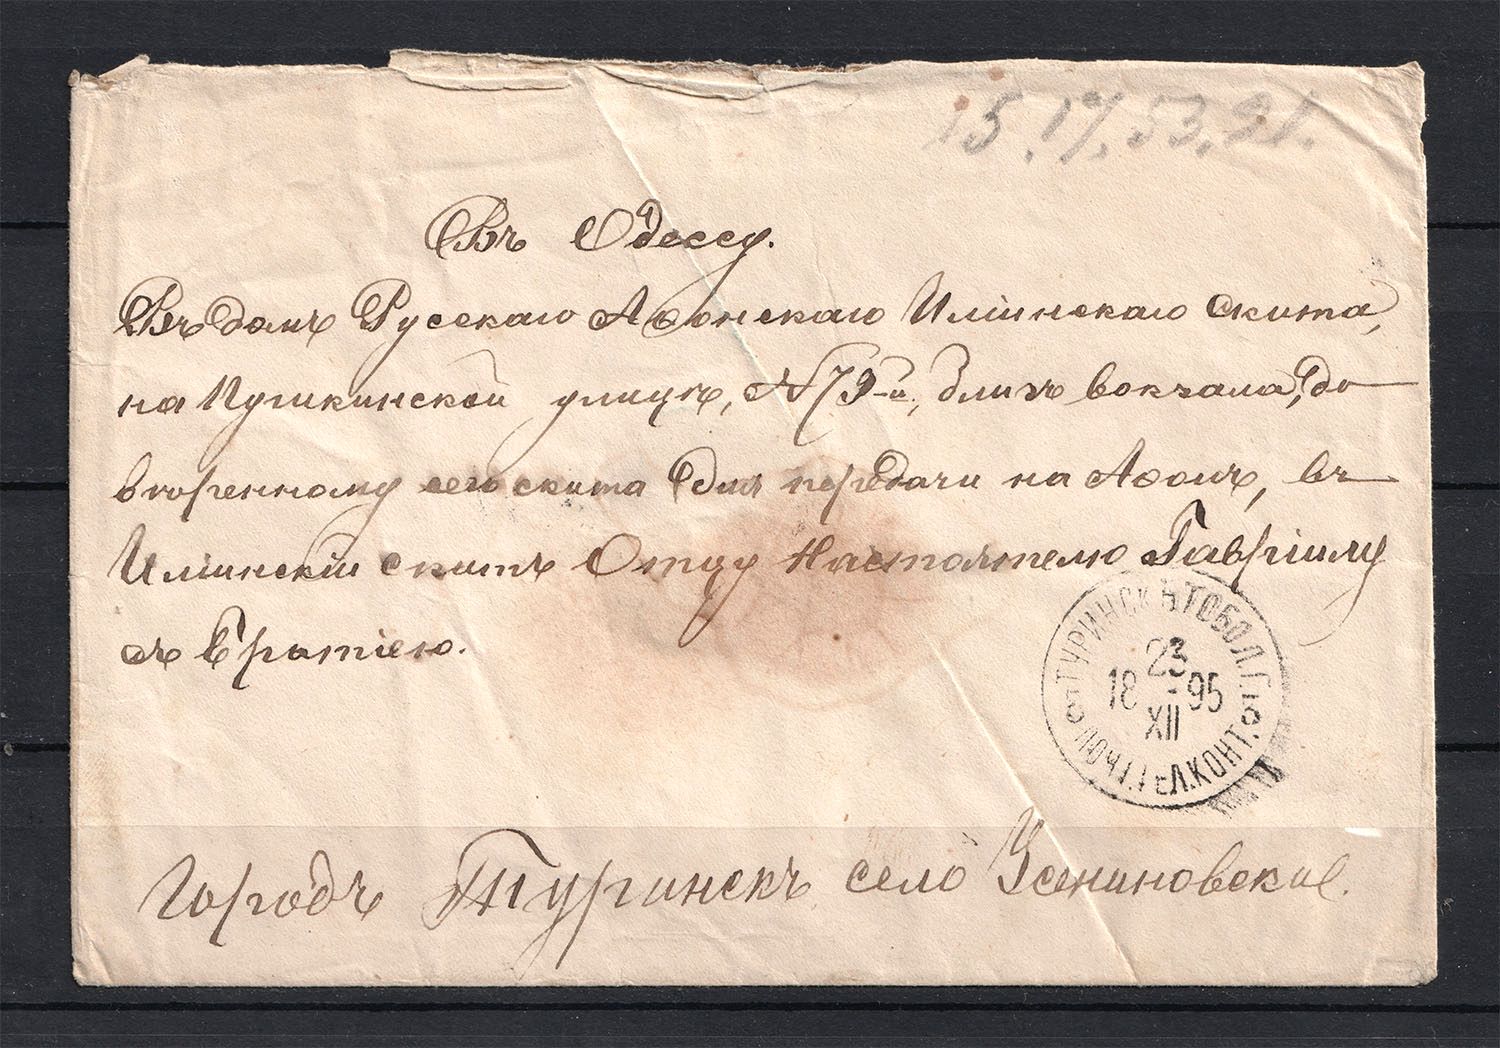 15.17.53.91.
Въ Одессу.
Въ домъ Русскаго Аѳонскаго Илiинскаго скита,
на Пушкинской улицѣ, №79-й, близъ вокзала, до
вѣренному сего скита для передачи на Аѳонъ, въ
Илiинскiй скитъ Отцу Настоятелю Гаврiилу
съ братiею.
ТУРИНСКЪ ТОБОЛ. Г.
23
18 - 95
XII
ПОЧТ. ТЕЛ. КОНТ.
Городъ Туринскъ село Усениновское.